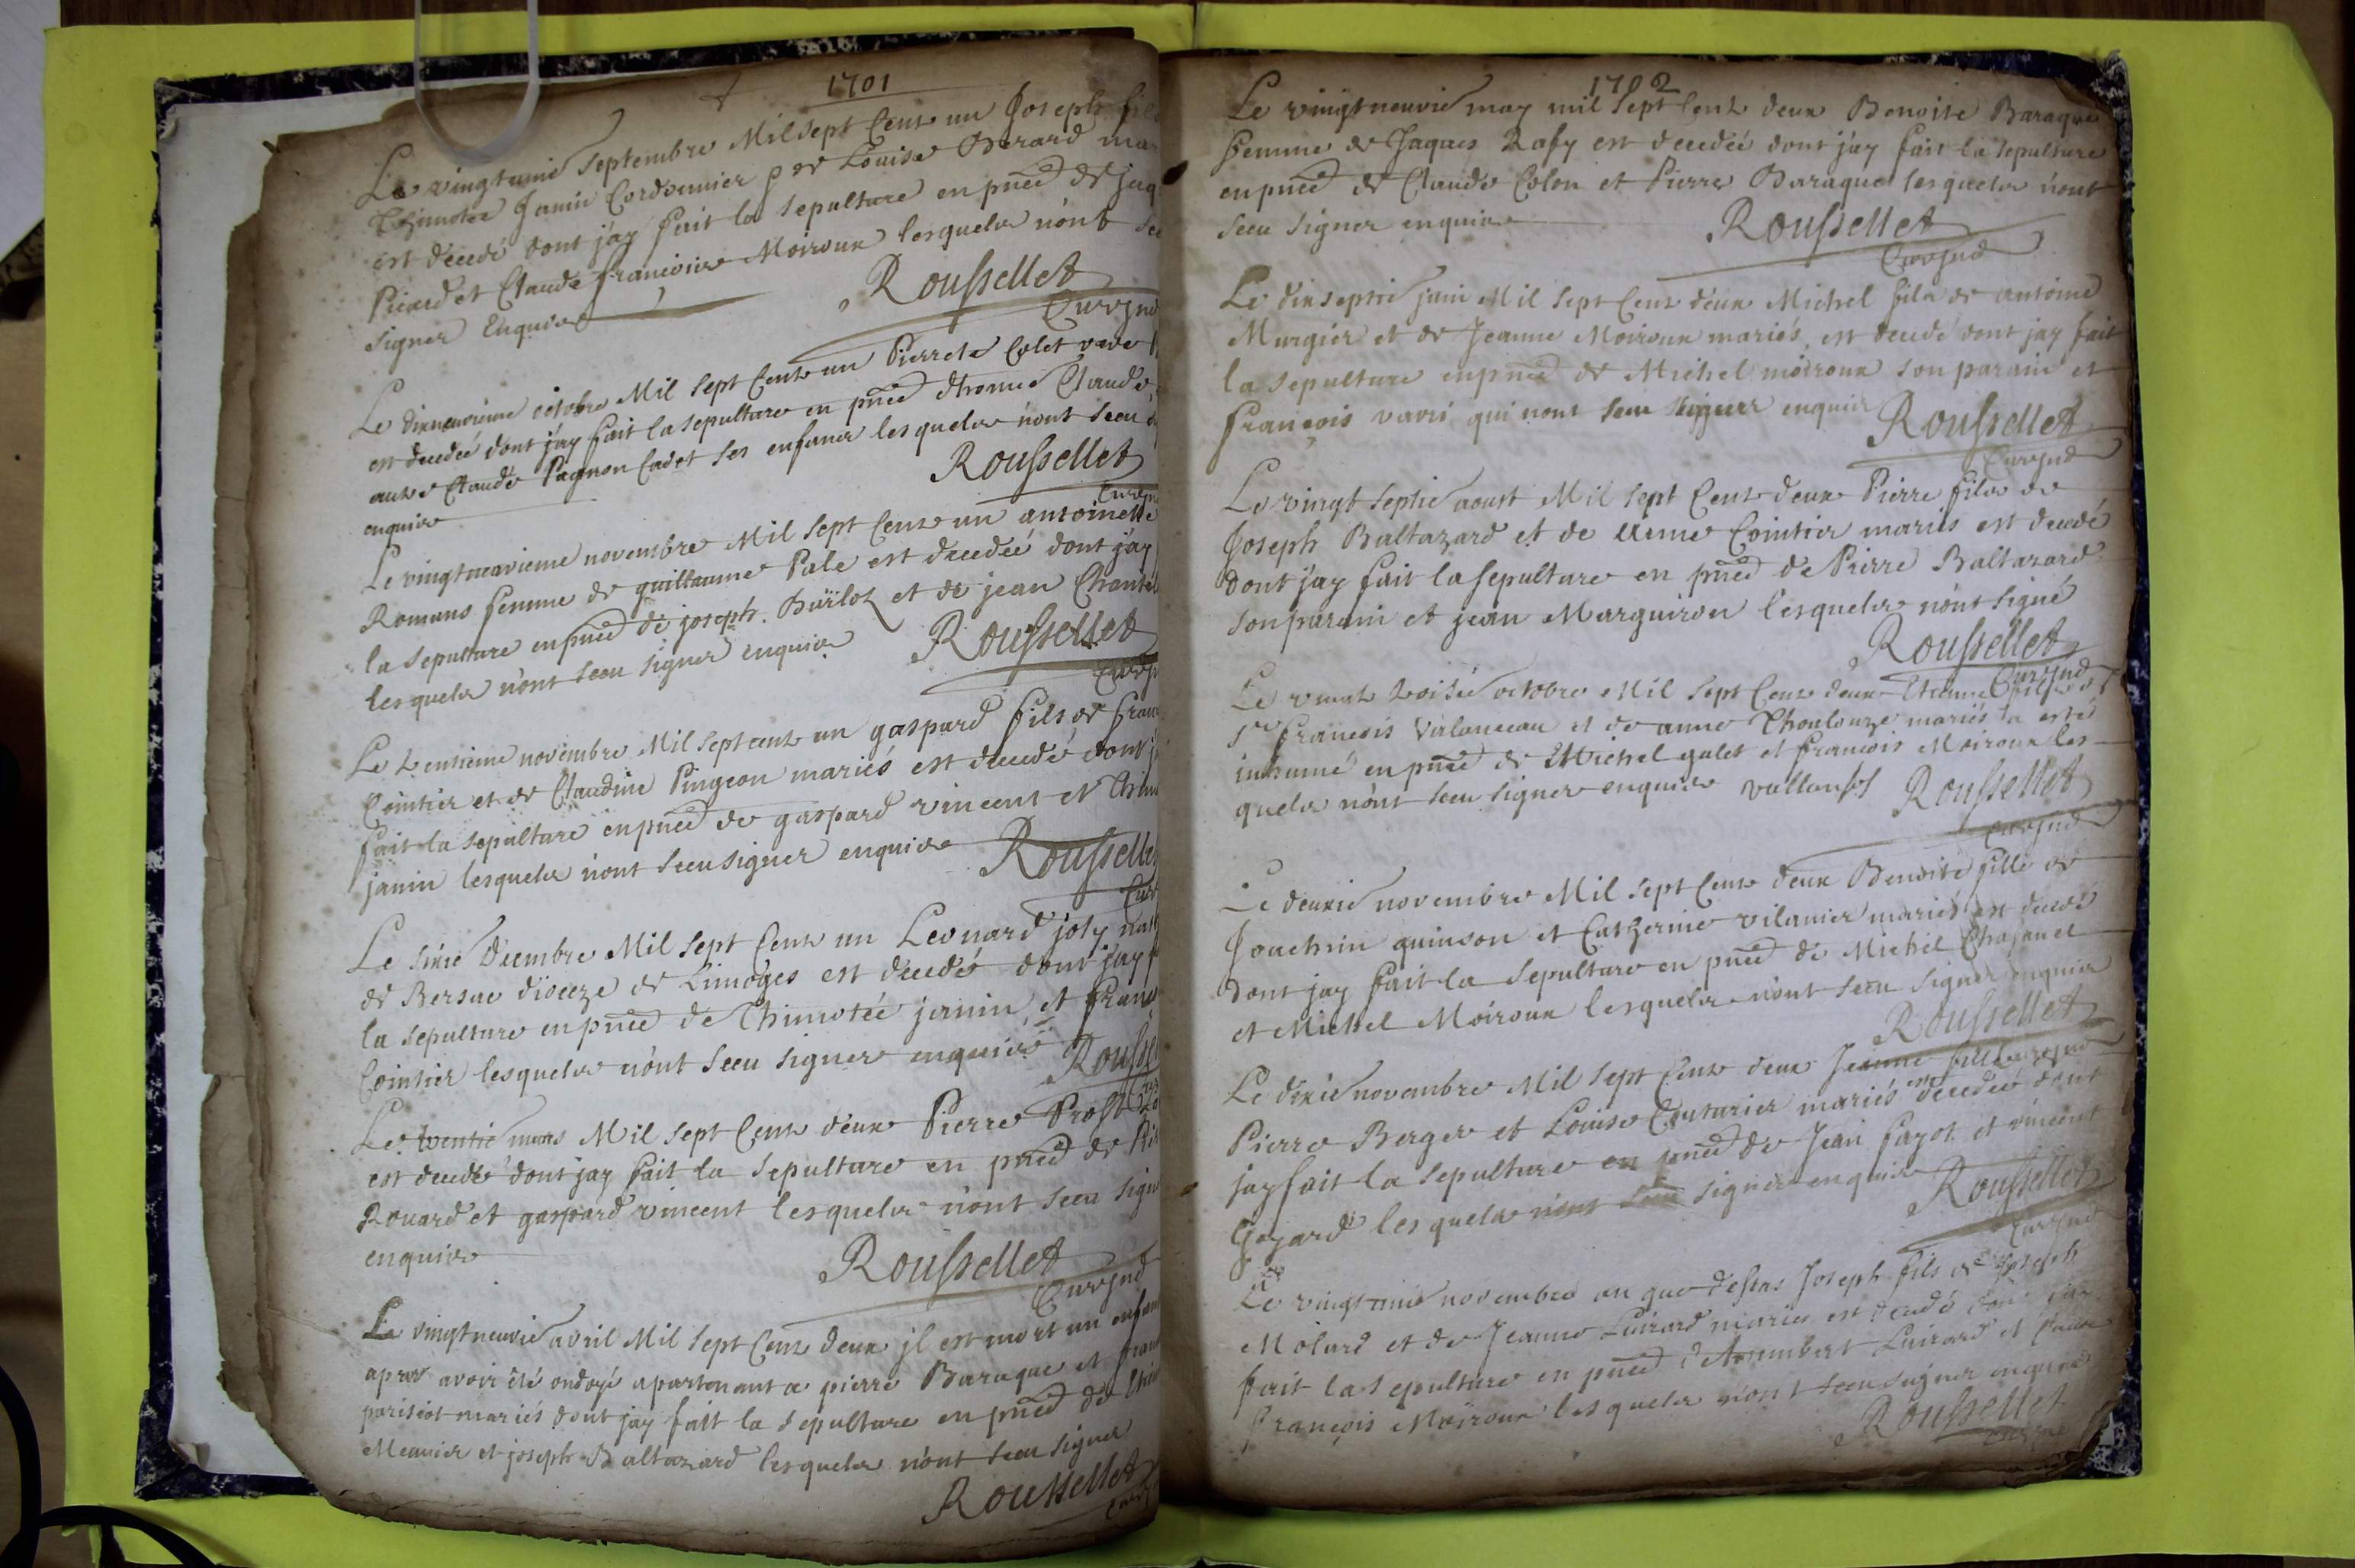 1701
Le vingtunie septembre Mil sept Cent un Joseph fils
Thimotée Janin Cordonnier et de Louise Berard mar
est décedé dont j'ay fait la sepulture en pnce de jaq
Picard et Claude francoise Moiroux lesquels n'ont sce
signer Enquis
Rousselet
Curé
Le dixneuvieme octobre Mil sept Cent un Pierrete Colet
est decedeé dont j'ay fait la sepulture en pnce Claude
autre Claude Pagnon Cadet ses enfans lesquels n'ont sceu
enquis
Roussellet
Le vingtneuvieme novembre Mil sept Cent un antoinette
Romans femme de guillaume Pale est decedeé dont jay
la sepulture en pnce de joseph et de jean
lesquels n'ont sceu signer enquis
Roussellet
Le trentieme novembre Mil sept cent un gaspard fils de fran
Cointier et de Claudine Pingeon mariés est decedé dont j
fait la sepulture en pnce de gaspard vincent et Thim
janin lesquels n'ont sceu signer enquis
Roussellet
Le sixie decembre Mil sept Cent un Leonard joly nat
de Bersac dioceze de Limoges est decedé dont jay f
la sepulture en pnce de Thimotée janin et franç
Cointier lesquels n'ont sceu signer enquis
Roussel
Le trentie mars Mil sept Cent deux Pierre Prost
est decedé dont jay fait la sepulture en pnce de
Rouard et gaspard vincent lesquels n'ont sceu sign
enquis
Roussellet
Le vingtneuvie avril Mil sept Cent deux il est mort un enfan
apres avoir été ondoyé apartenant a pierre Baraque et fran
parisiot mariés dont jay fait la sepulture en pnce de
Meunier et joseph Baltazard lesquels n'ont sceu signer
Roussellet
1702
Le vingtneuvie may mil sept Cent deux Benoite Baraque
femme de Jaques Rafy est decedeé dont j'ay fait la sepulture
en pnce de Claude Colon et Pierre Baraque lesquels n'ont
sceu signer enquis
Roussellet
Le dixseptie juin Mil sept Cent deux Michel fils de antoine
Murgier et de Jeanne Moiroux mariés est decedé dont jay fait
la sepulture en pnce de Michel moiroux son parain et
François vavri qui n'ont sceu signer enquis
Roussellet
Le vingt septie aoust Mil sept Cent deux Pierre fils de
Joseph Baltazard et de Cointier mariés est decedé
dont jay fait la sepulture en pnce de Pierre Baltazard
son parain et jean Marguiron lesquels n'ont signé
Roussellet
Le vingt troisie octobre Mil sept Cent deux Etienne fils de
Sr François Valanceau et de anne Thoulouze mariés a esté
inhumé en pnce de Michel galet et francois Moiroux les
quels n'ont sceu signer enquis
Roussellet
Le deuxie novembre Mil sept Cent deux Benoite fille de
Joachim quinson et Catherine vilanier mariés est decedé
dont jay fait la sepulture en pnce de Michel Chapanel
et Michel Moiroux lesquels n'ont sceu signer enquis
Roussellet
Le dixie novembre Mil sept Cent deux Jeanne fille
Pierre Berger et Louise Couturier mariés est decedeé dont
jay fait la sepulture en pnce de Jean fayot et vincent
Goyard lesquels n'ont sceu signer enquis
Roussellet
Le vingtunie novembre an que dessus Joseph fils de Joseph
Molard et de Jeanne Luirard mariés est decedé dont jay
fait la sepulture en pnce de Luirard et
François Moiroux lesquels n'ont sceu signer enquis
Roussellet